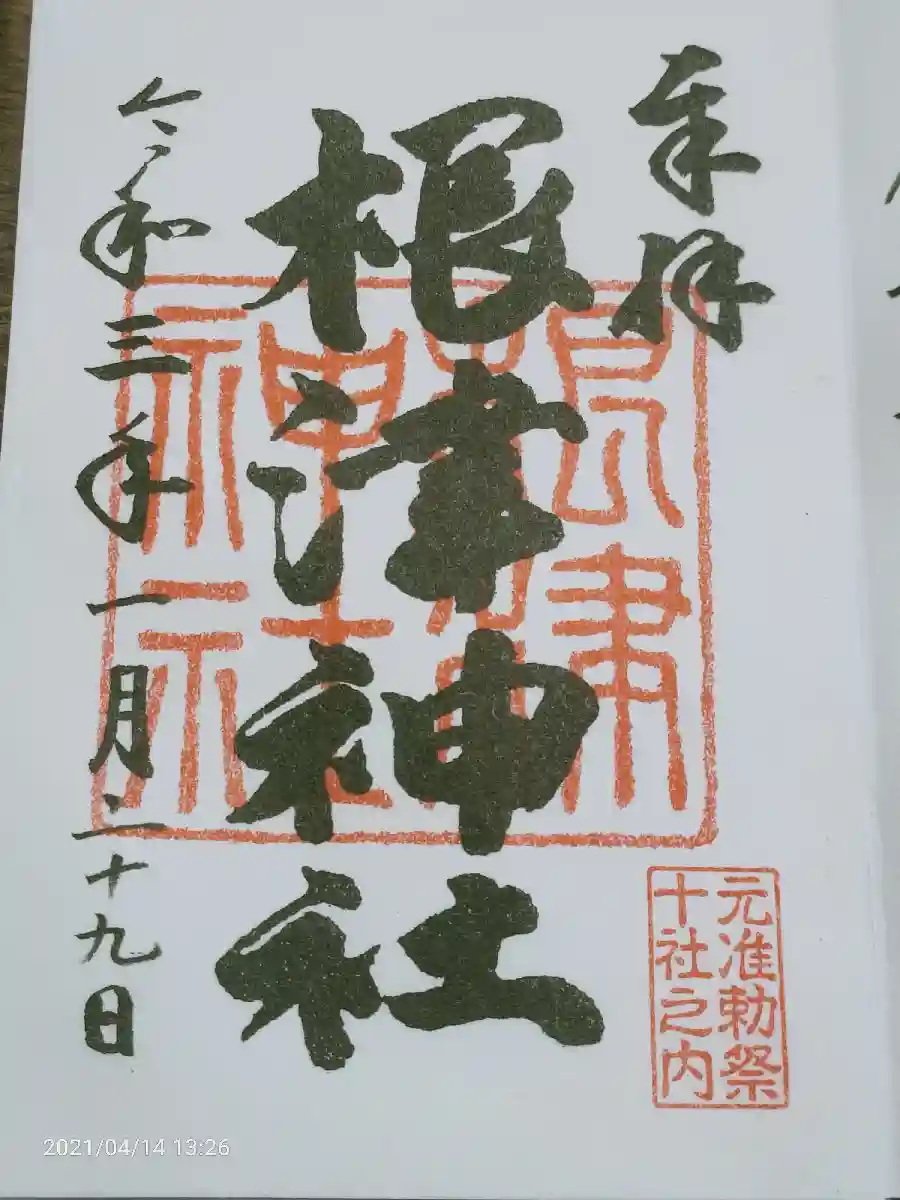 奉拝
根津神社
根津神社
元准勅祭
十社之内
令和三年一月二十九日
2021/04/14 13:26